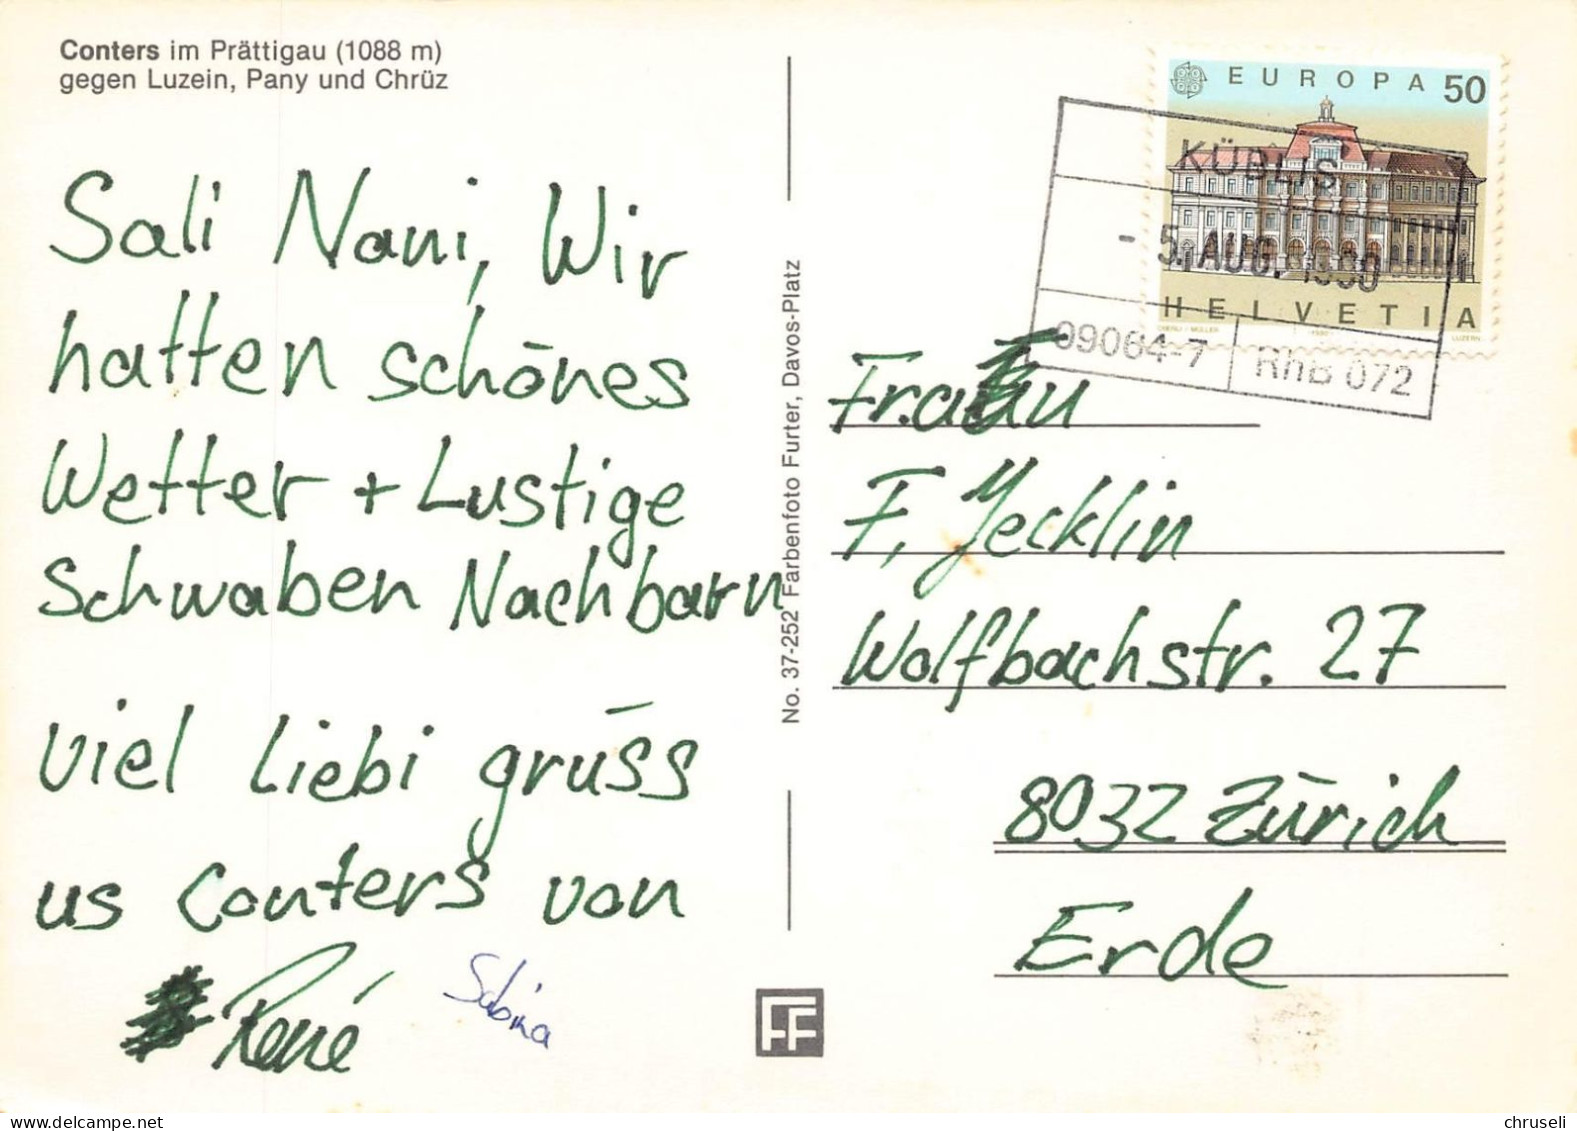 Conters im Prättigau (1088 m)
gegen Luzein, Pany und Chrüz
Sali Nani, Wir
hatten schönes
Wetter + Lustige
Schwaben Nachbarn
viel liebi grüss
us Conters von
René
Sabina
No. 37-252 Farbenfoto Furter, Davos-Platz
FF
EUROPA 50
HELVETIA
LUZERN
KÜBLIS
- 5. AUG. 1990
09064-7
RhB 072
Frau
F. Jecklin
Wolfbachstr. 27
8032 Zürich
Erde
chruseli